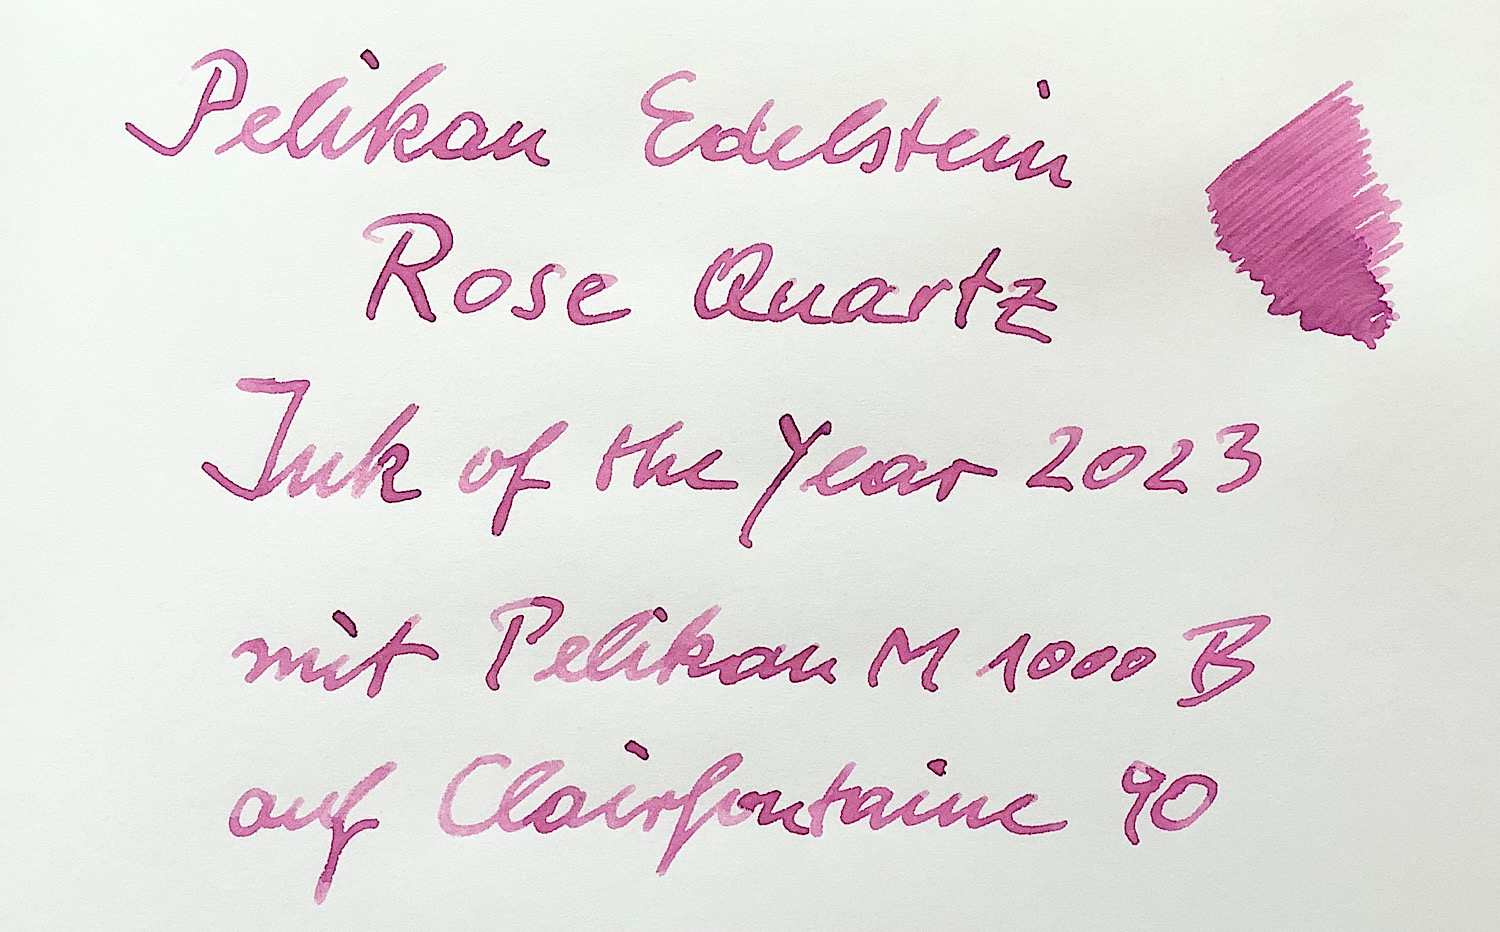 Pelikan Edelstein
Rose Quartz
Ink of the Year 2023
mit Pelikan M 1000 B
auf Clairfontaine 90